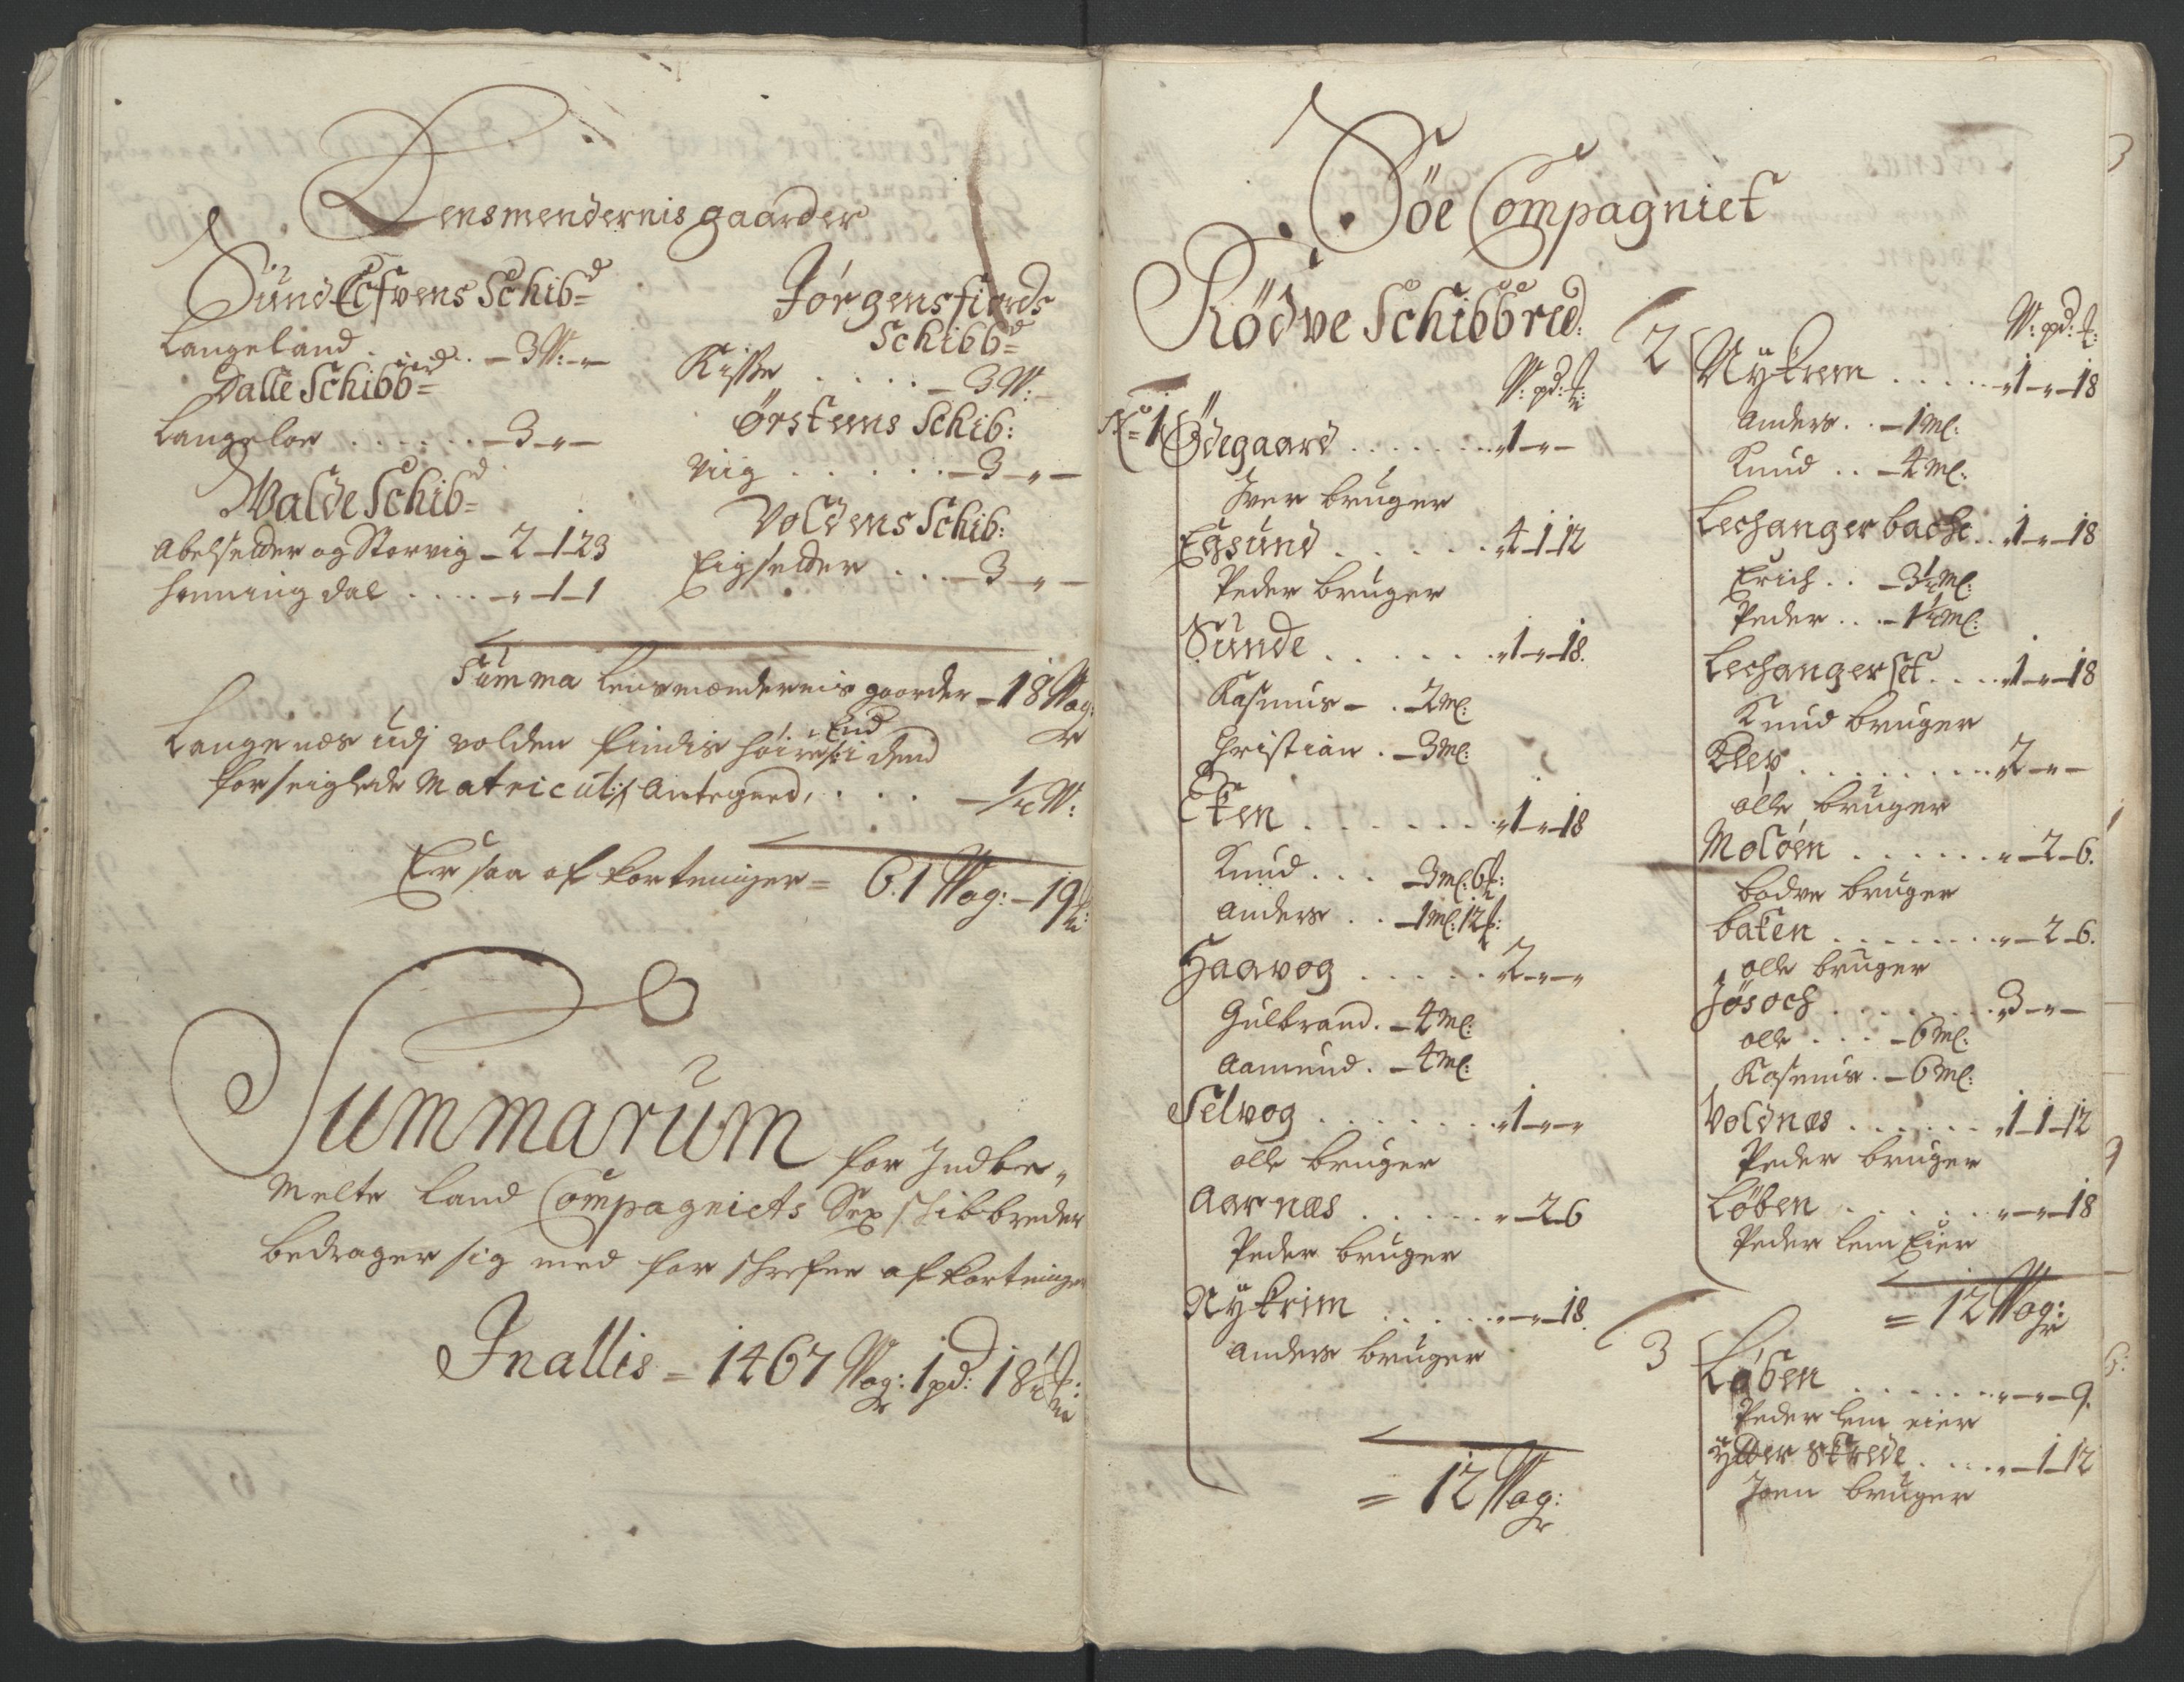 Lensmendernis gaarder
Sund Elfvens Schibd
Langeland . . . . . - 3 W: - „ -
Dalle Schibbrd
Langeloe . . . . . . - 3 - „ -
Walde Schibd
Abelsetter og Storvig - 2 - 1 - 23
Honningdal . . . . - „ - 1 - 1
Jørgensfiords
Schibbd
Kiste . . . . . - 3 W:
Ørstens Schib:
Viig . . . . . . - 3 - „ -
Voldens Schib:
Eigsetter . . . - 3 - „ -
Summa Lensmændernis gaarder - 18 Wog:
Langenæs udj volden findis høiere
End
i dend
forseiglede Matricul: Antegned, . . . . - 1/2 W:
Er saa afkortninger = 61 Wog: - 19
Summarum for Indbe„
melte Land Compagniets Sex schibbreder
bedrager sig med for schrefne afkortninger
Inallis = 1467 Wog: 1 pd: 18 1/2
Söe Compagniet
Rödve Schibbred:
W: pd:
No 1
Ödegaard . . . . . . . „ 1 - „ -
Iver bruger
Egsund . . . . . „ 4 - 1 - 12
Peder bruger
Sunde . . . . . . „ 1 - „ - 18.
Rasmus - . - 2 ml:
Christian . - 3 ml:
Eken . . . . . . . „ 1 - „ - 18
Knud . . . - 3 ml: 6
Anders . . - 1 ml: 12
Haavog . . . . . „ 2 - „ - „
Gulbrand . - 4 ml:
Aamund . - 4 ml:
Selvog . . . . . . . „ 1 - „ - „
olle bruger
Aarnæs . . . . . „ - 2 - 6
Peder bruger
Nykrim . . . . . „ - „ - 18.
Anders bruger
= 12 Wog:
W: pd:
2
Nykrem . . . . . „ 1 - „ - 18
Anders . . - 1 ml:
Knud . . - 4 ml:
Lechangerbache . . „ 1 - „ - 18
Erich . . - 3 1/2 ml:
Peder . . . - 1 1/2 ml:
Lechangerset . . . . „ 1 - „ - 18
Knud bruger
Klev . . . . . . . . „ 2 - „ -
olle bruger
Moløen . . . . . . „ - 2 - 6.
bodve bruger
baken . . . . . . . „ - 2 - 6.
olle bruger
Jøsoch . . . . . . . „ 3 - „ -
olle . . . - 6 ml:
Rasmus . - 6 ml:
Voldnæs . . . . . . „ 1 - 1 - 12
Peder bruger
Løben . . . . . . „ - „ - 18
Peder Lem Eier
= 12 Wog:
3
Løben . . . . . . . „ - „ - 9.
Peder Lem eier
ytter Skrede . . . . „ - 1 - 12
Joen bruger